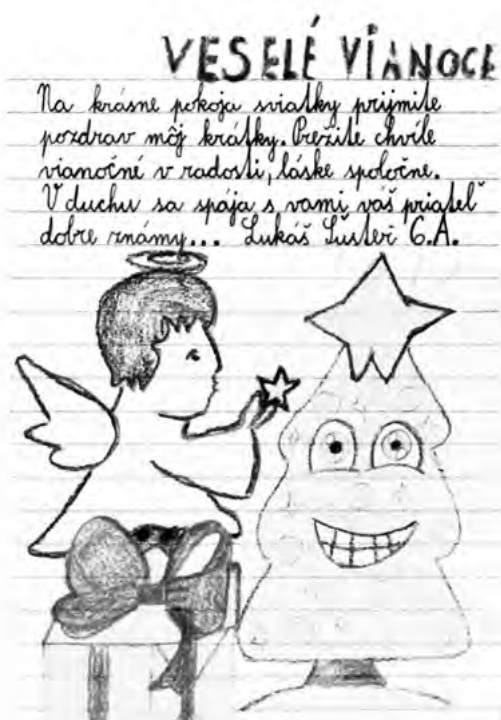 VESELÉ VIANOCE
Na krásne pokoja sviatky prijmite
pozdrav môj krátky. Prežite chvíle
vianočné v radosti, láske spoločne.
V duchu sa spája s vami váš priateľ
dobre známy... Lukáš Šušter 6.A.